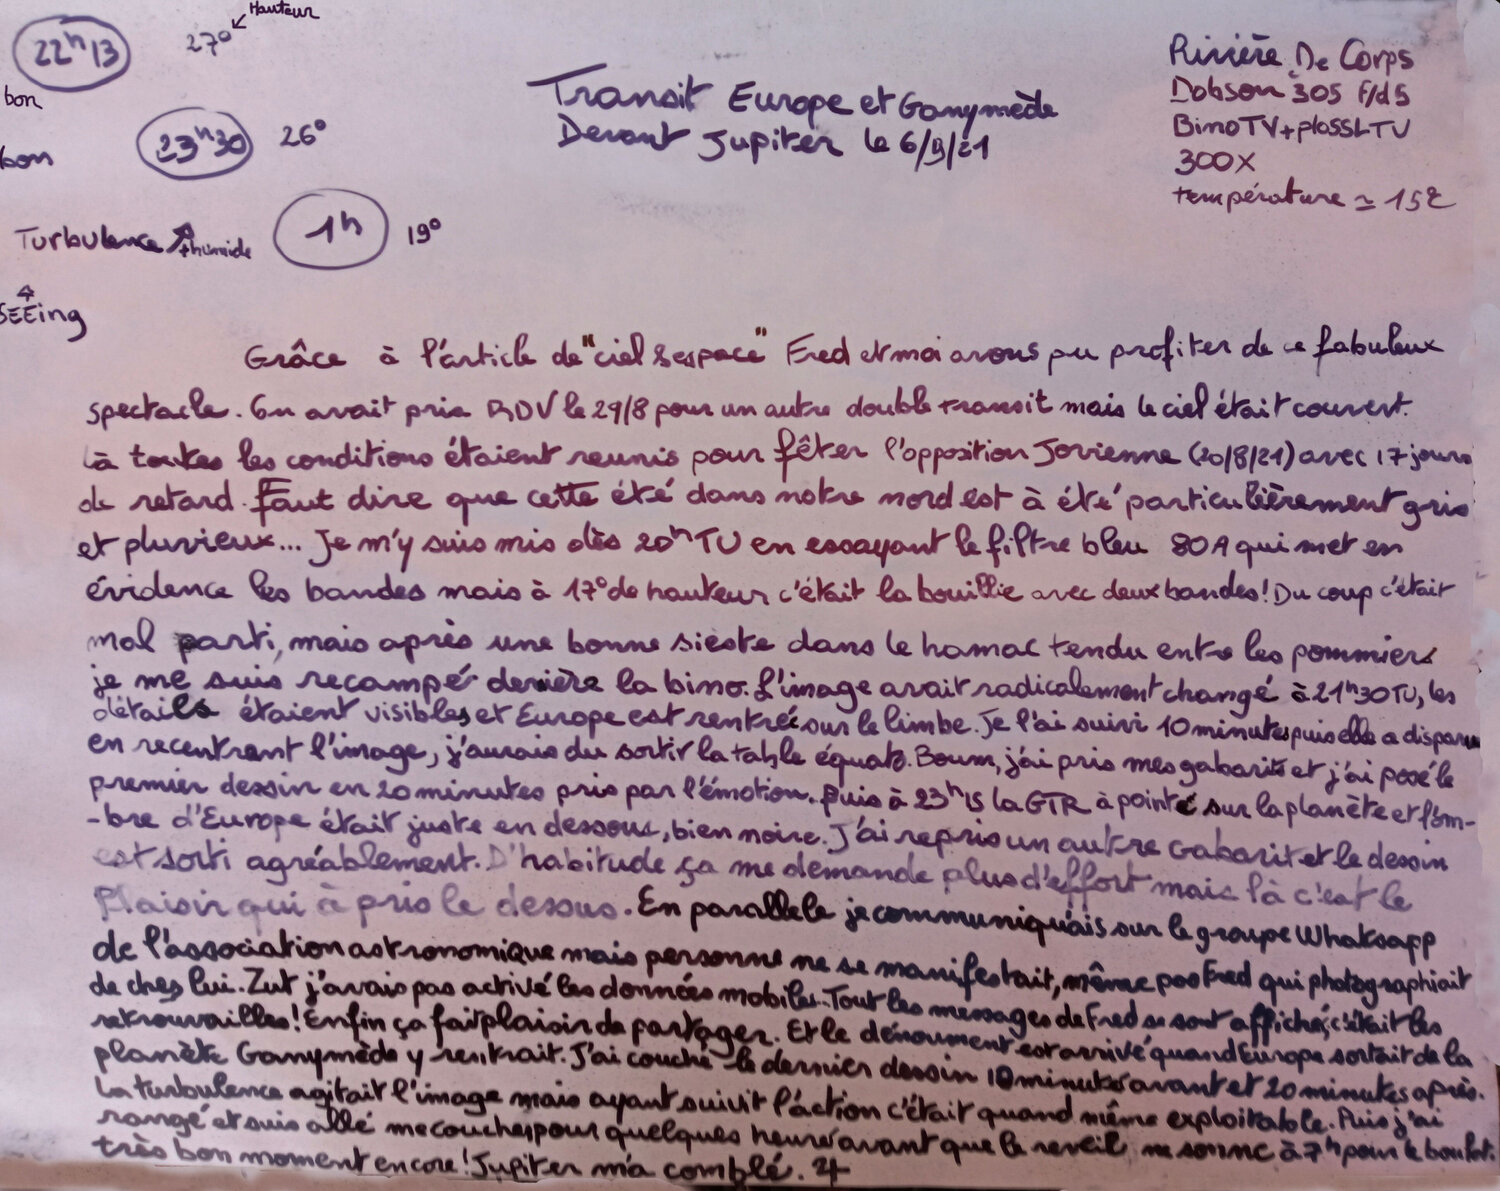 Hauteur
22h13 27°
bon
23h30 26°
bon
1h 19°
Turbulence + humide
SEEing
Transit Europe et Ganymède
Devant Jupiter le 6/9/21
Rivière De Corps
Dobson 305 F/d5
BinoTV+plossLTV
300X
température ≃ 15°C
Grâce à l'article de "ciel & espace" Fred et moi avons pu profiter de ce fabuleux
spectacle. On avait pris RDV le 29/8 pour un autre double transit mais le ciel était couvert.
Là toutes les conditions étaient reunis pour fêter l'opposition Jovienne (20/8/21) avec 17 jours
de retard. Faut dire que cette été dans notre nord est à été particulièrement gris
et pluvieux... Je m'y suis mis dès 20h TU en essayant le filtre bleu 80A qui met en
évidence les bandes mais à 17° de hauteur c'était la bouillie avec deux bandes! Du coup c'était
mal parti, mais après une bonne sieste dans le hamac tendu entre les pommiers
je me suis recampé derrière la bino. L'image avait radicalement changé à 21h30TU, les
détails étaient visibles et Europe est rentrée sur le limbe. Je l'ai suivi 10 minutes puis elle a disparu
en recentrant l'image, j'aurais du sortir la table équato. Boum, j'ai pris mes gabarits et j'ai posé le
premier dessin en 20 minutes pris par l'émotion. Puis à 23h15 la GTR à pointé sur la planète et l'om-
-bre d'Europe était juste en dessous, bien noire. J'ai repris un autre Gabarit et le dessin
est sorti agréablement. D'habitude ça me demande plus d'effort mais là c'est le
Plaisir qui à pris le dessus. En parallèle je communiquais sur le groupe Whatsapp
de l'association astronomique mais personne ne se manifestait, même pas Fred qui photographiait
de chez lui. Zut j'avais pas activé les données mobiles. Tout les messages de Fred se sont affiché, c'était les
retrouvailles! Enfin ça fait plaisir de partager. Et le dénoument est arrivé quand Europe sortait de la
planète Ganymède y rentrait. J'ai couché le dernier dessin 10 minutes avant et 20 minutes après.
La turbulence agitait l'image mais ayant suivit l'action c'était quand même exploitable. Puis j'ai
rangé et suis allé me coucher pour quelques heure avant que le reveil me sonne à 7h pour le boulot.
très bon moment encore! Jupiter m'a comblé. ♃